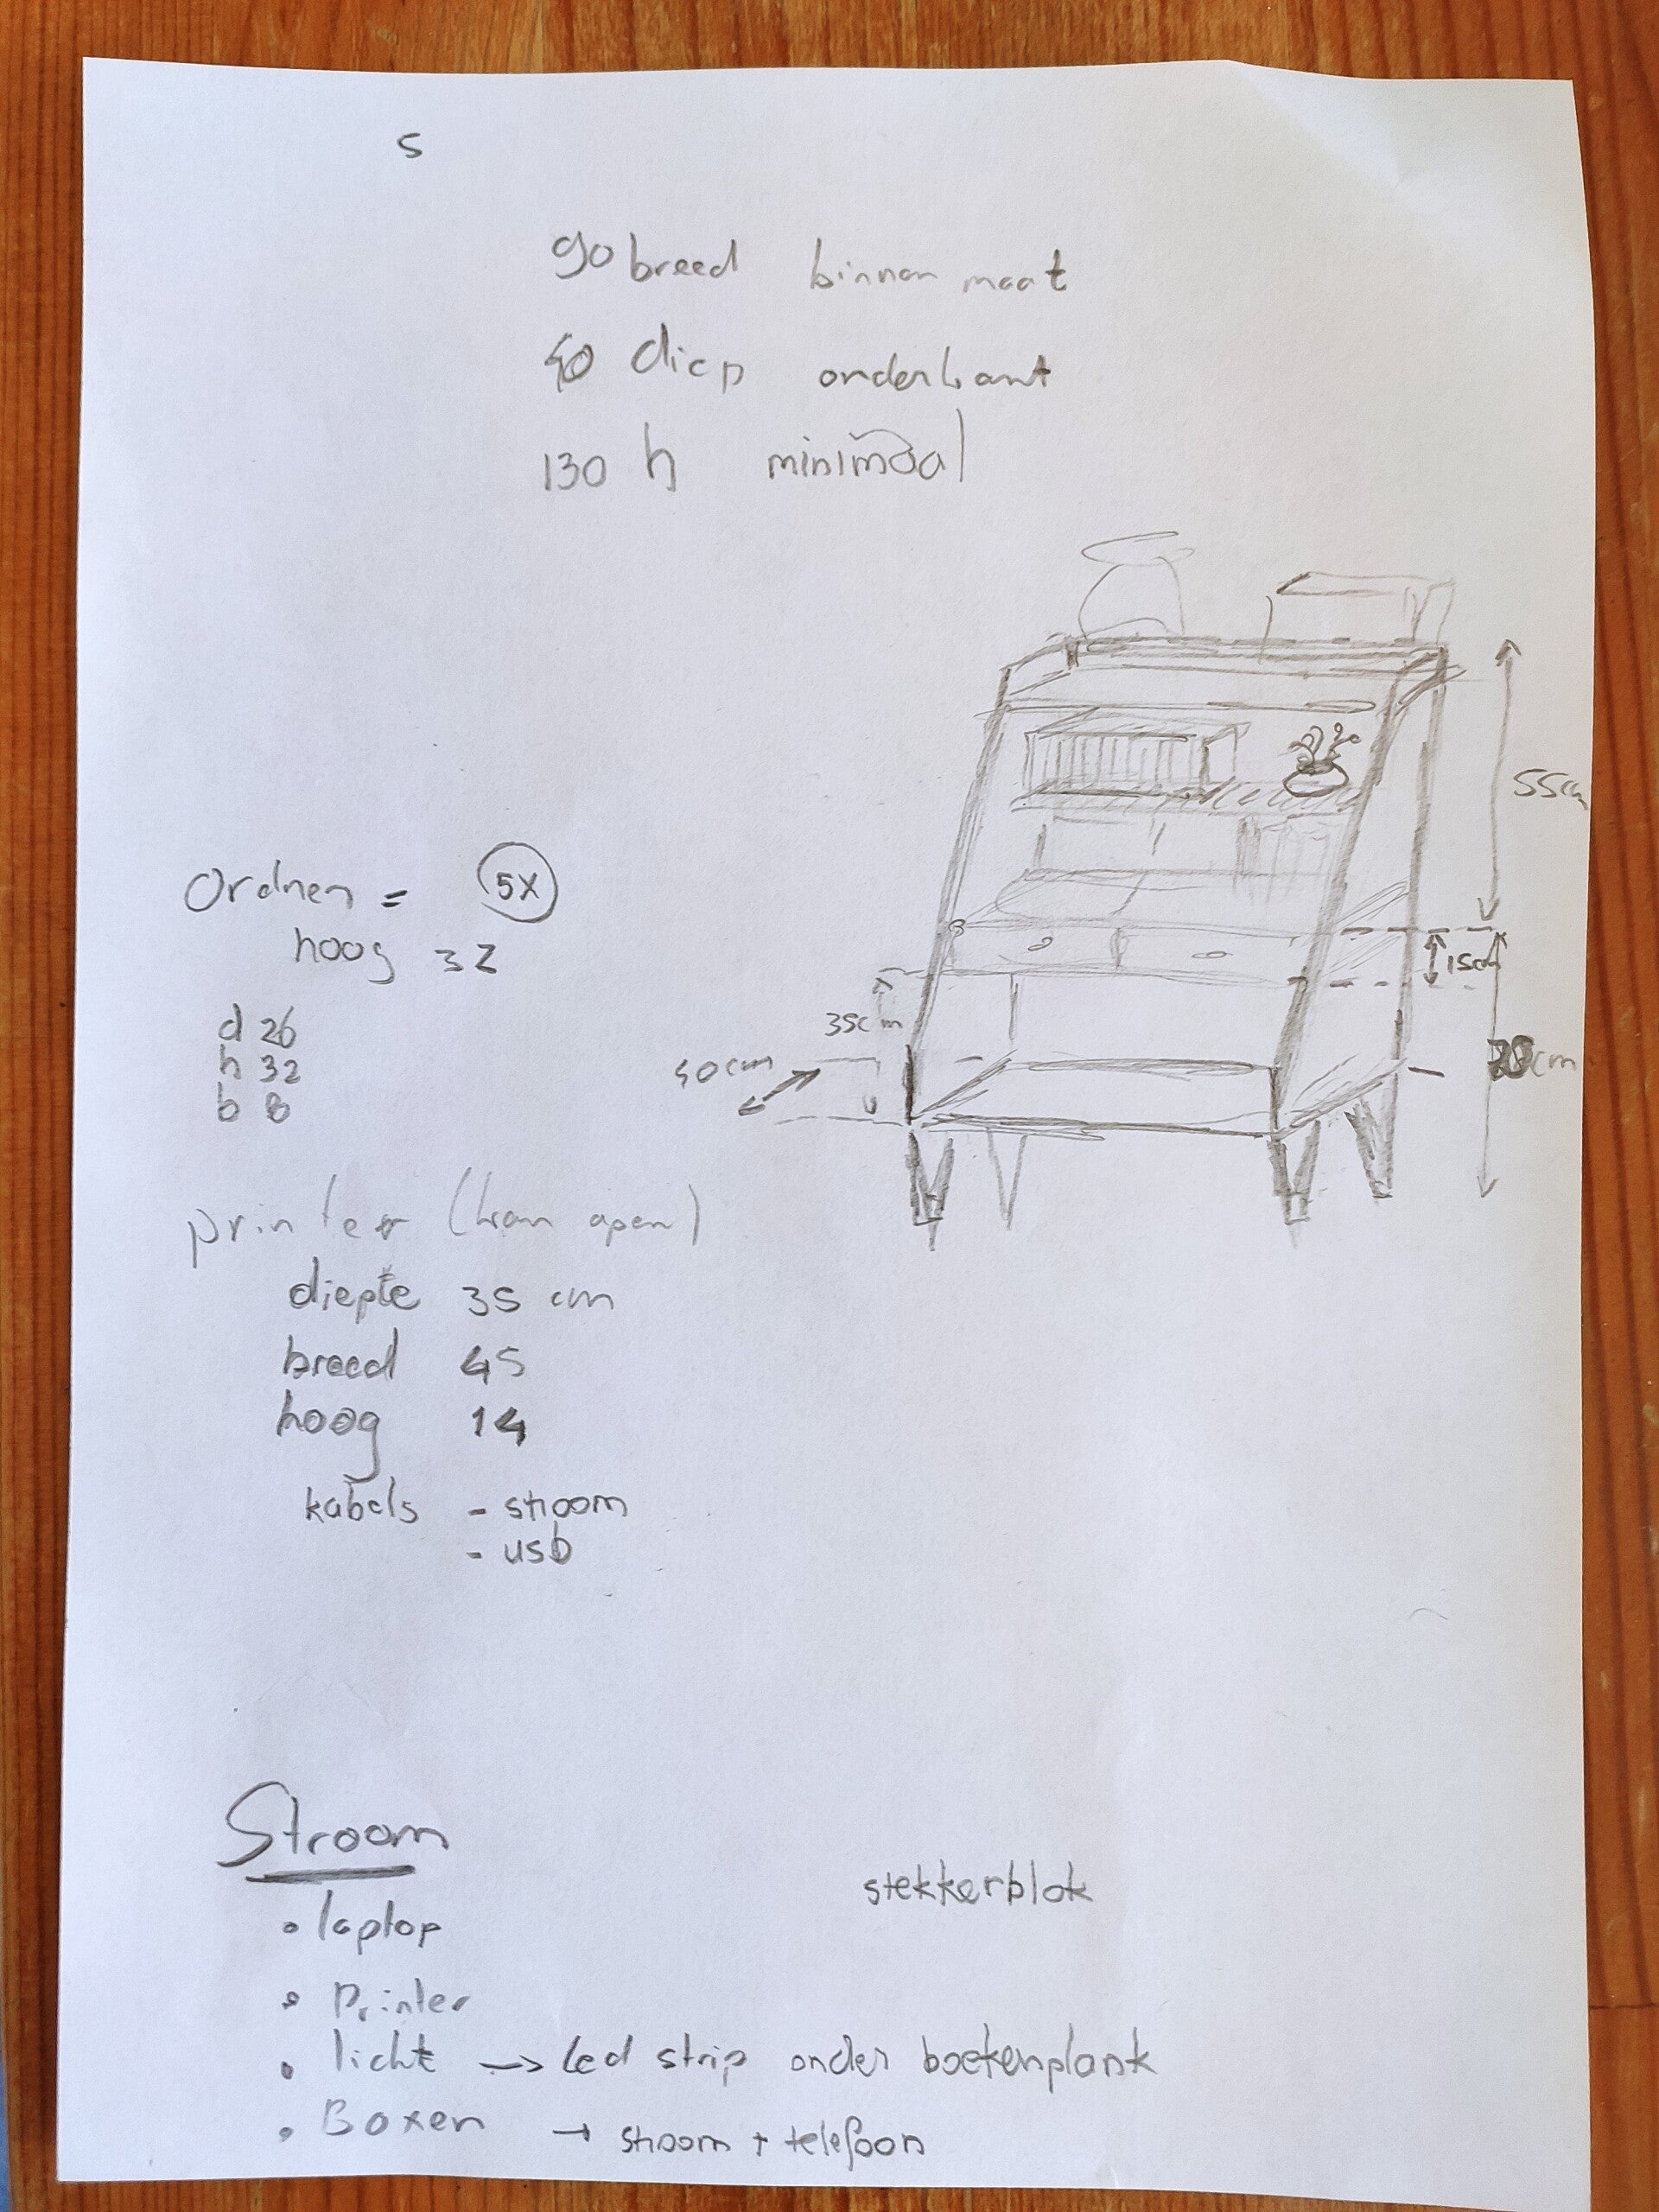 S
90 breed binnen maat
40 diep onderkant
130 h minimaal
55cm
15cm
35cm
40cm
Ordnen = 5x
hoog 32
d 26
h 32
b 8
printer (kan open)
diepte 35 cm
breed 45
hoog 14
kabels - stroom
- usb
Stroom
stekkerblok
• laptop
• Printer
• licht -> Led strip onder boekenplank
• Boxen -> stroom + telefoon